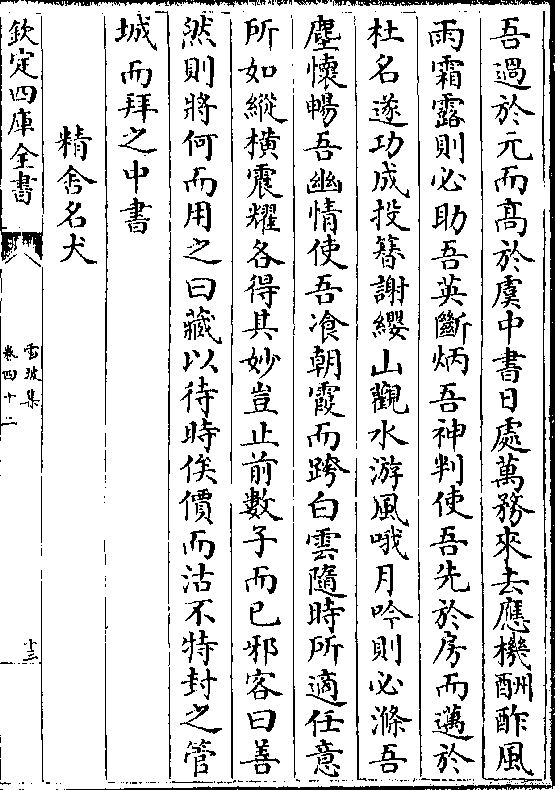 吾過於元而髙於虞中書日處萬務來去應機酬酢風
雨霜露則必助吾英斷炳吾神判使吾先於房而邁於
杜名遂功成投簪謝纓山觀水游風哦月吟則必滌吾
塵懷暢吾幽情使吾飡朝霞而跨白雲隨時所適任意
所如縱橫震耀各得其妙豈止前數子而已邪客曰善
然則將何而用之曰藏以待時俟價而沽不特封之管
城而拜之中書
精舍名犬
欽定四庫全書
雪坡集
卷四十二
十三